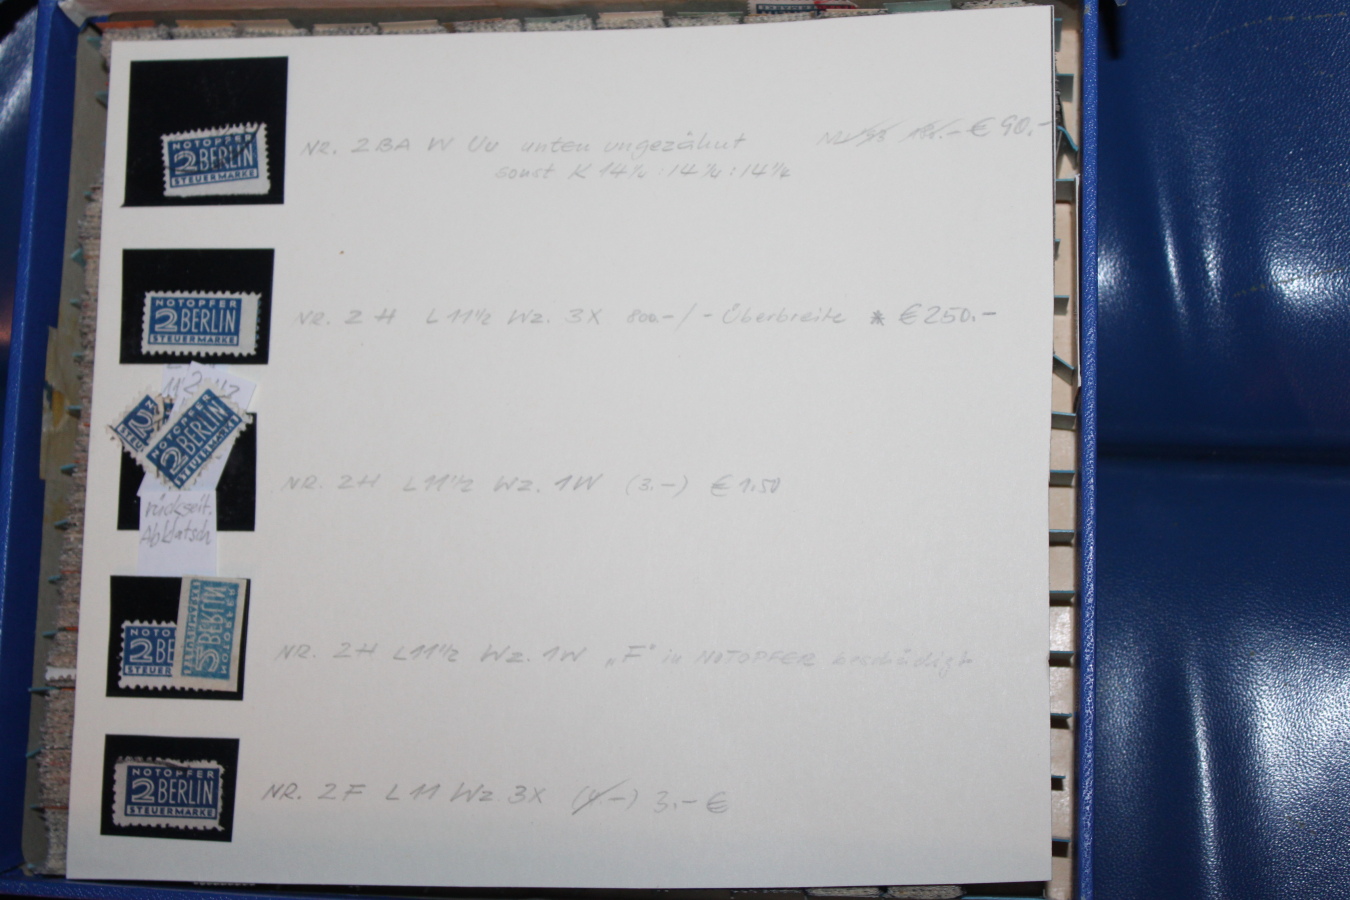 NOTOPFER
2 BERLIN
STEUERMARKE
NR. 2BA W Uu unten ungezähnt € 90.-
sonst K 14¼ : 14¼ : 14¼
NOTOPFER
2 BERLIN
STEUERMARKE
NR. 2 H L 11½ Wz. 3X 800.-/- Überbreite * € 250.-
2
NOTOPFER
2 BERLIN
STEUERMARKE
rückseit.
Abklatsch
NR. 2H L11½ Wz. 1W (3.-) € 1,50
NOTO
2 BE
2 BERLIN
NR. 2H L11½ Wz. 1W „F“ in NOTOPFER beschädigt
NOTOPFER
2 BERLIN
STEUERMARKE
NR. 2F L11 Wz 3X 3.- €